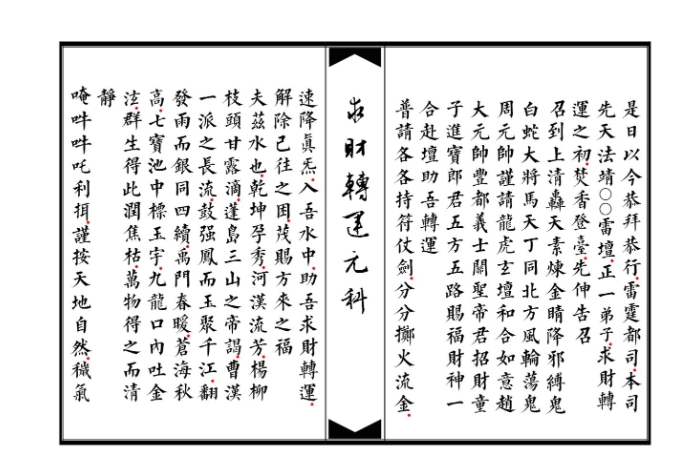 是日以今恭拜恭行雷霆都司本司
先天法靖○○雷壇正一弟子求財轉
運之初焚香登臺先伸告召
召到上清轟天素煉金睛降邪縛鬼
白蛇大將馬天丁同北方風輪蕩鬼
周元帥謹請龍虎玄壇和合如意趙
大元帥豐都義士關聖帝君招財童
子進寶郎君五方五路賜福財神一
合赴壇助吾轉運
普請各各持符仗劍分分擲火流金
求財轉運元科
速降眞炁入吾水中助吾求財轉運
解除已往之困茂賜方來之福
夫茲水也乾坤孕秀河漢流芳楊柳
枝頭甘露滴蓬島三山之帝謁曹漢
一派之長流鼓强鳳而玉聚千江翻
發雨而銀同四續禹門春暖蒼海秋
高七寶池中標玉宇九龍口內吐金
泫群生得此潤焦枯萬物得之而清
靜
唵吽吽吒利揖謹按天地自然穢氣